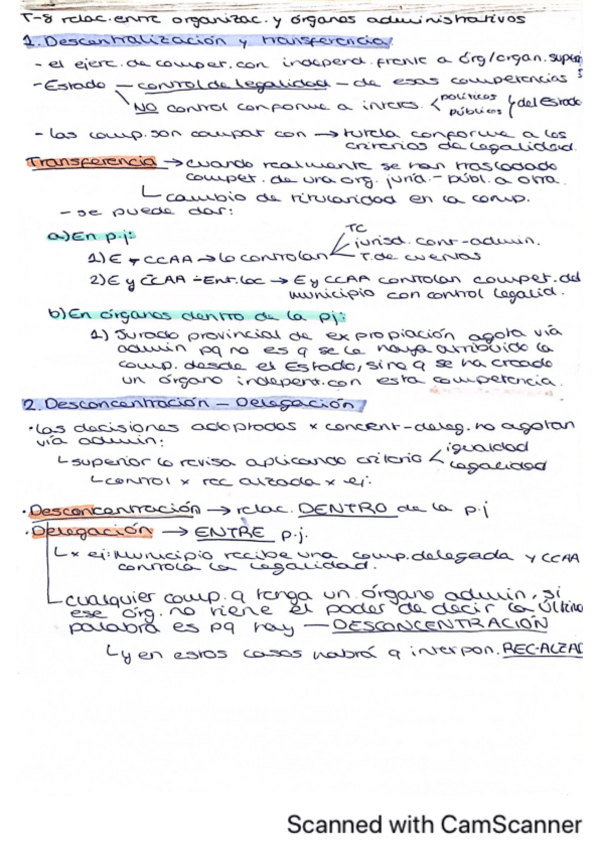 T-8 relac. entre organizac. y órganos administrativos
1. Descentralización y transferencia
- el ejerc. de compet. con independ. frente a órg/organ. super
- Estado — control de legalidad — de esas competencias
NO control conforme a interes. < políticos públicos } del estado
- las comp. son compat con → tutela conforme a los
criterios de legalidad.
Transferencia → cuando realmente se han trasladado
compet. de una org. juríd. - públ. a otra.
└ cambio de titularidad en la comp.
- se puede dar:
a) En p.j:
1) E y CCAA → lo controlan < TC
jurisd. cont-admin.
T. de cuentas
2) E y CCAA - Ent. loc → E y CCAA controlan compet. del
municipio con control legalid.
b) En órganos dentro de la pj:
1) Jurado provincial de expropiación agota vía
admin pq no es q se le haya atribuido la
comp. desde el Estado, sino q se ha creado
un órgano independ. con esta competencia.
2. Desconcentración - Delegación
· las decisiones adoptadas x concent-deleg. no agotan
vía admin:
└ superior lo revisa aplicando criterio < igualdad
legalidad
└ control x rec alzada x ej:
· Desconcentración → relac. DENTRO de la p.j
· Delegación → ENTRE p.j.
└ x ej: Municipio recibe una comp. delegada y CCAA
controla la legalidad.
└ cualquier comp. q tenga un órgano admin, si
ese órg. no tiene el poder de decir la última
palabra es pq hay — DESCONCENTRACIÓN
└ y en estos casos habrá q interpon. REC-ALZAD
Scanned with CamScanner